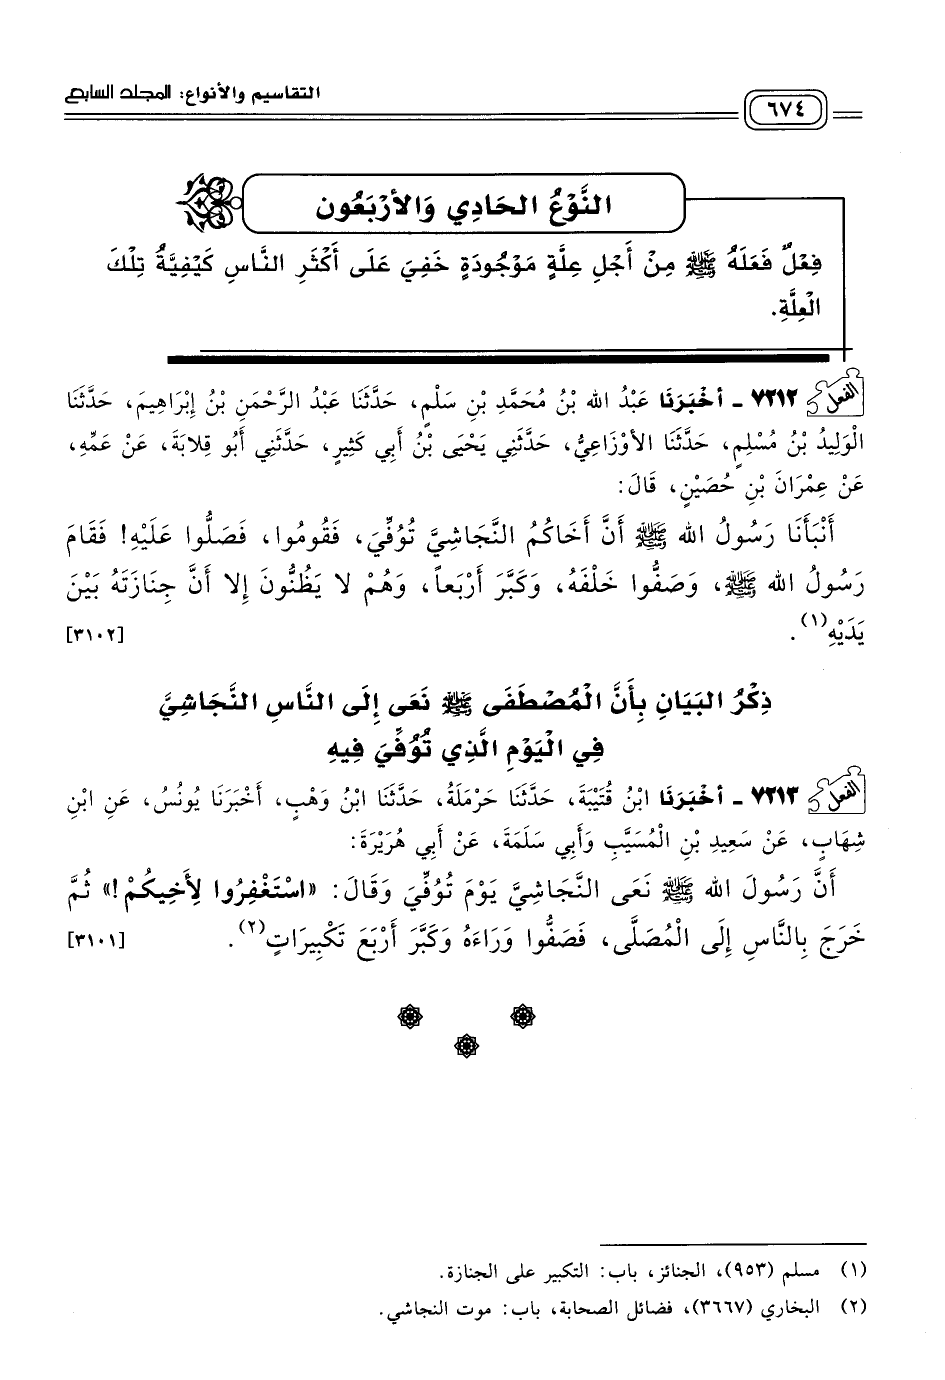 التقاسيم والأنواع: المجلد السابع
٦٧٤
النَّوْعُ الحَادِي وَالأرْبَعُون
فِعْلٌ فَعَلَهُ ﷺ مِنْ أَجْلِ عِلَّةٍ مَوْجُودَةٍ خَفِيَ عَلَى أَكْثَرِ النَّاسِ كَيْفِيَّةُ تِلْكَ
الْعِلَّةِ.
الفعل ٧٢١٢ - أَخْبَرَنَا عَبْدُ الله بْنُ مُحَمَّدِ بْنِ سَلْمٍ، حَدَّثَنَا عَبْدُ الرَّحْمَنِ بْنُ إِبْرَاهِيمَ، حَدَّثَنَا
الْوَلِيدُ بْنُ مُسْلِمٍ، حَدَّثَنَا الأَوْزَاعِيُّ، حَدَّثَنِي يَحْيَى بْنُ أَبِي كَثِيرٍ، حَدَّثَنِي أَبُو قِلابَةَ، عَنْ عَمِّهِ،
عَنْ عِمْرَانَ بْنِ حُصَيْنٍ، قَالَ:
أَنْبَأَنَا رَسُولُ الله ﷺ أَنَّ أَخَاكُمُ النَّجَاشِيَّ تُوُفِّيَ، فَقُومُوا، فَصَلُّوا عَلَيْهِ! فَقَامَ
رَسُولُ الله ﷺ، وَصَفُّوا خَلْفَهُ، وَكَبَّرَ أَرْبَعاً، وَهُمْ لا يَظُنُّونَ إِلا أَنَّ جِنَازَتَهُ بَيْنَ
يَدَيْهِ(١). [٣١٠٢]
ذِكْرُ البَيَانِ بِأَنَّ الْمُصْطَفَى ﷺ نَعَى إِلَى النَّاسِ النَّجَاشِيَّ
فِي الْيَوْمِ الَّذِي تُوُفِّيَ فِيهِ
الفعل ٧٢١٣ - أَخْبَرَنَا ابْنُ قُتَيْبَةَ، حَدَّثَنَا حَرْمَلَةُ، حَدَّثَنَا ابْنُ وَهْبٍ، أَخْبَرَنَا يُونُسُ، عَنِ ابْنِ
شِهَابٍ، عَنْ سَعِيدِ بْنِ الْمُسَيَّبِ وَأَبِي سَلَمَةَ، عَنْ أَبِي هُرَيْرَةَ:
أَنَّ رَسُولَ الله ﷺ نَعَى النَّجَاشِيَّ يَوْمَ تُوُفِّيَ وَقَالَ: «اسْتَغْفِرُوا لِأَخِيكُمْ!» ثُمَّ
خَرَجَ بِالنَّاسِ إِلَى الْمُصَلَّى، فَصَفُّوا وَرَاءَهُ وَكَبَّرَ أَرْبَعَ تَكْبِيرَاتٍ(٢). [٣١٠١]
(١) مسلم (٩٥٣)، الجنائز، باب: التكبير على الجنازة.
(٢) البخاري (٣٦٦٧)، فضائل الصحابة، باب: موت النجاشي.